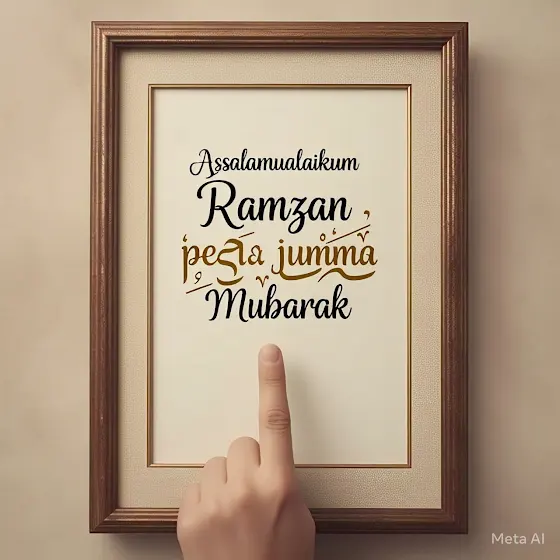 Assalamualaikum
Ramzan
jumma
Mubarak
Meta AI